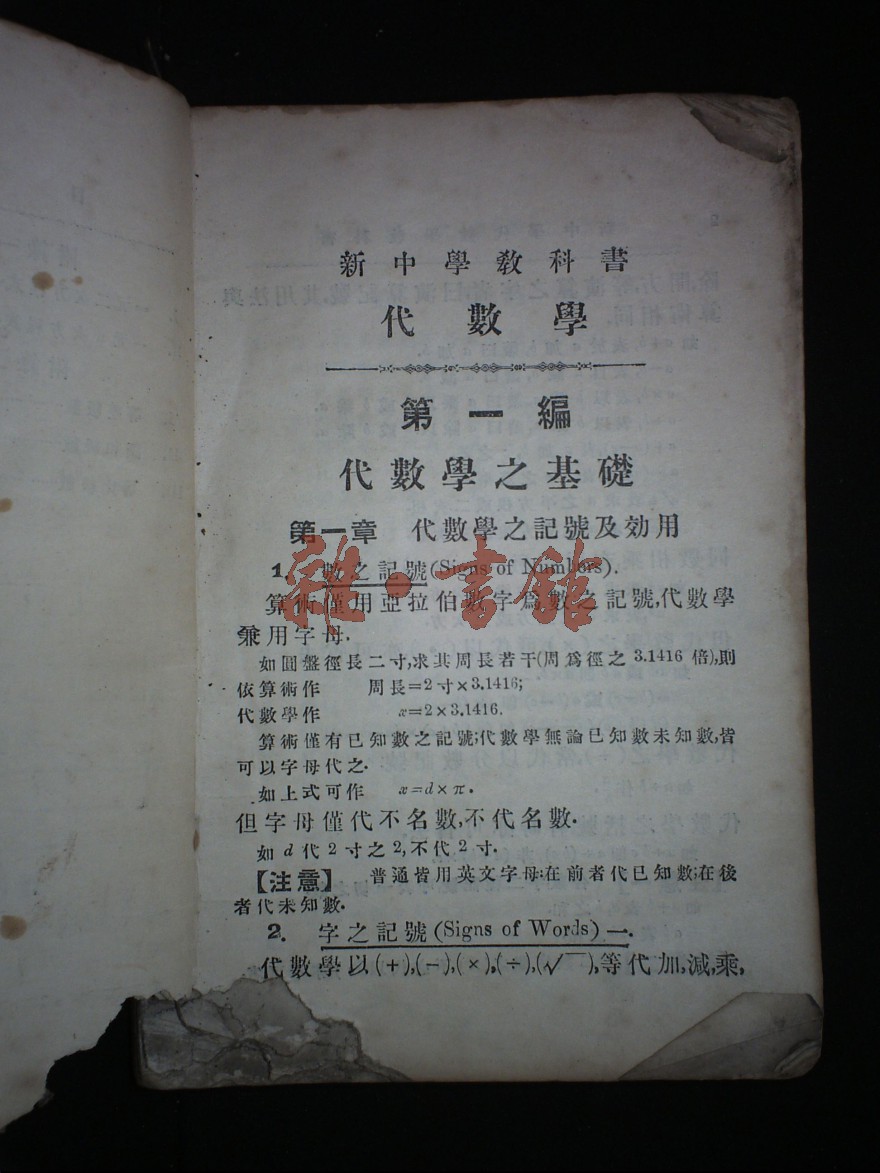 新中學教科書
代數學
第一編
代數學之基礎
第一章 代數學之記號及効用
1. 數之記號(Signs of Numbers).
算術僅用亞拉伯數字爲數之記號,代數學
兼用字母.
如圓盤徑長二寸,求其周長若干(周爲徑之3.1416倍),則
依算術作 周長=2寸×3.1416;
代數學作 x=2×3.1416.
算術僅有已知數之記號;代數學無論已知數未知數,皆
可以字母代之.
如上式可作 x=d×π.
但字母僅代不名數,不代名數.
如d代2寸之2,不代2寸.
【注意】 普通皆用英文字母:在前者代已知數;在後
者代未知數.
2. 字之記號(Signs of Words)一.
代數學以(+),(−),(×),(÷),(√‾),等代加,減,乘,
雜·書館